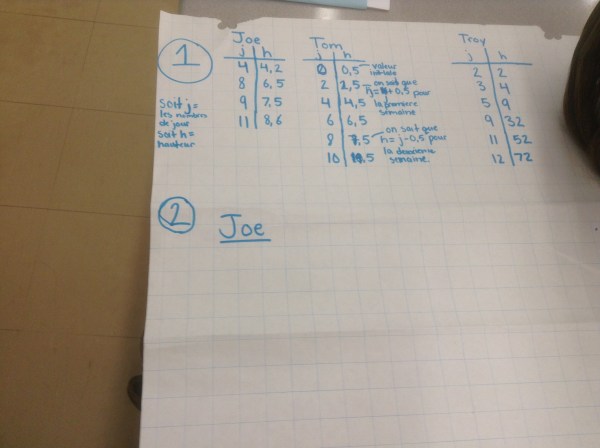 1
soit j =
les nombres
de jour
soit h =
hauteur
Joe
j h
4 4,2
8 6,5
9 7,5
11 8,6
Tom
j h
0 0,5 valeur
initiale
2 2,5 on sait que
+ 0,5 pour
4 4,5 la première
semaine
6 6,5
8 7,5 on sait que
h = j - 0,5 pour
10 ,5 la deuxième
semaine.
Troy
j h
2 2
3 4
5 9
9 32
11 52
12 72
2
Joe